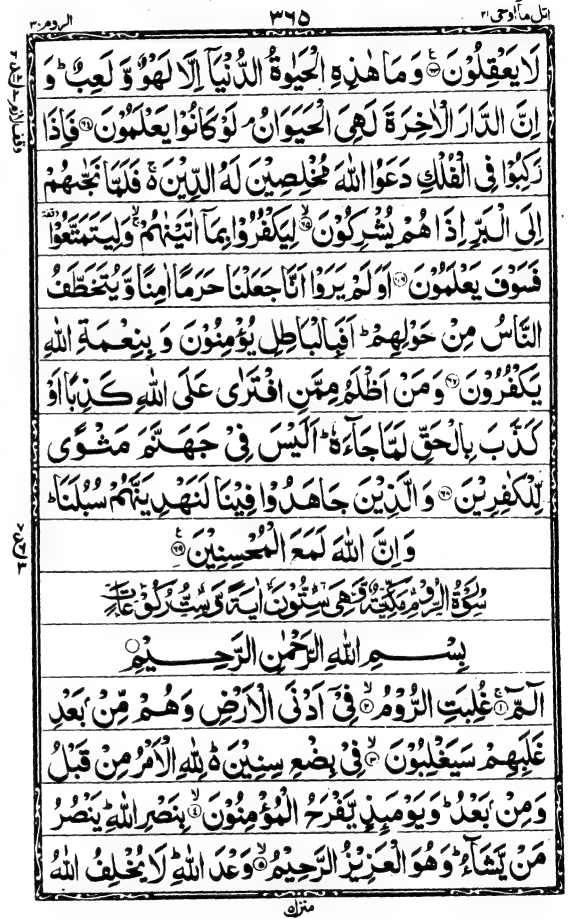 اتل ما اوحی ۲۱ ۳۶۵ الروم ۳۰
لَا يَعْقِلُوْنَ ۶۳ وَمَا هٰذِهِ الْحَيٰوةُ الدُّنْيَآ اِلَّا لَهْوٌ وَّ لَعِبٌ ؕ وَ
اِنَّ الدَّارَ الْاٰخِرَةَ لَهِيَ الْحَيَوَانُ ۘ لَوْ كَانُوْا يَعْلَمُوْنَ ۶۴ فَاِذَا
رَكِبُوْا فِي الْفُلْكِ دَعَوُا اللّٰهَ مُخْلِصِيْنَ لَهُ الدِّيْنَ ۵ فَلَمَّا نَجّٰىهُمْ
اِلَى الْبَرِّ اِذَا هُمْ يُشْرِكُوْنَ ۶۵ لِيَكْفُرُوْا بِمَآ اٰتَيْنٰهُمْ ۙ وَلِيَتَمَتَّعُوْا ٝ
فَسَوْفَ يَعْلَمُوْنَ ۶۶ اَوَلَمْ يَرَوْا اَنَّا جَعَلْنَا حَرَمًا اٰمِنًا وَّيُتَخَطَّفُ
النَّاسُ مِنْ حَوْلِهِمْ ؕ اَفَبِالْبَاطِلِ يُؤْمِنُوْنَ وَبِنِعْمَةِ اللّٰهِ
يَكْفُرُوْنَ ۶۷ وَمَنْ اَظْلَمُ مِمَّنِ افْتَرٰى عَلَى اللّٰهِ كَذِبًا اَوْ
كَذَّبَ بِالْحَقِّ لَمَّا جَآءَهٗ ؕ اَلَيْسَ فِيْ جَهَنَّمَ مَثْوًى
لِّلْكٰفِرِيْنَ ۶۸ وَالَّذِيْنَ جَاهَدُوْا فِيْنَا لَنَهْدِيَنَّهُمْ سُبُلَنَا ؕ
وَاِنَّ اللّٰهَ لَمَعَ الْمُحْسِنِيْنَ ۶۹
سُوْرَةُ الرُّوْمِ مَكِّيَّةٌ وَّهِيَ سِتُّوْنَ اٰيَةً وَّسِتُّ رُكُوْعَاتٍ
بِسْمِ اللّٰهِ الرَّحْمٰنِ الرَّحِيْمِ
الٓمّٓ ۱ غُلِبَتِ الرُّوْمُ ۲ فِيْٓ اَدْنَى الْاَرْضِ وَهُمْ مِّنْۢ بَعْدِ
غَلَبِهِمْ سَيَغْلِبُوْنَ ۳ فِيْ بِضْعِ سِنِيْنَ ۵ لِلّٰهِ الْاَمْرُ مِنْ قَبْلُ
وَمِنْۢ بَعْدُ ؕ وَيَوْمَئِذٍ يَّفْرَحُ الْمُؤْمِنُوْنَ ۴ بِنَصْرِ اللّٰهِ ؕ يَنْصُرُ
مَنْ يَّشَآءُ ؕ وَهُوَ الْعَزِيْزُ الرَّحِيْمُ ۵ وَعْدَ اللّٰهِ ؕ لَا يُخْلِفُ اللّٰهُ